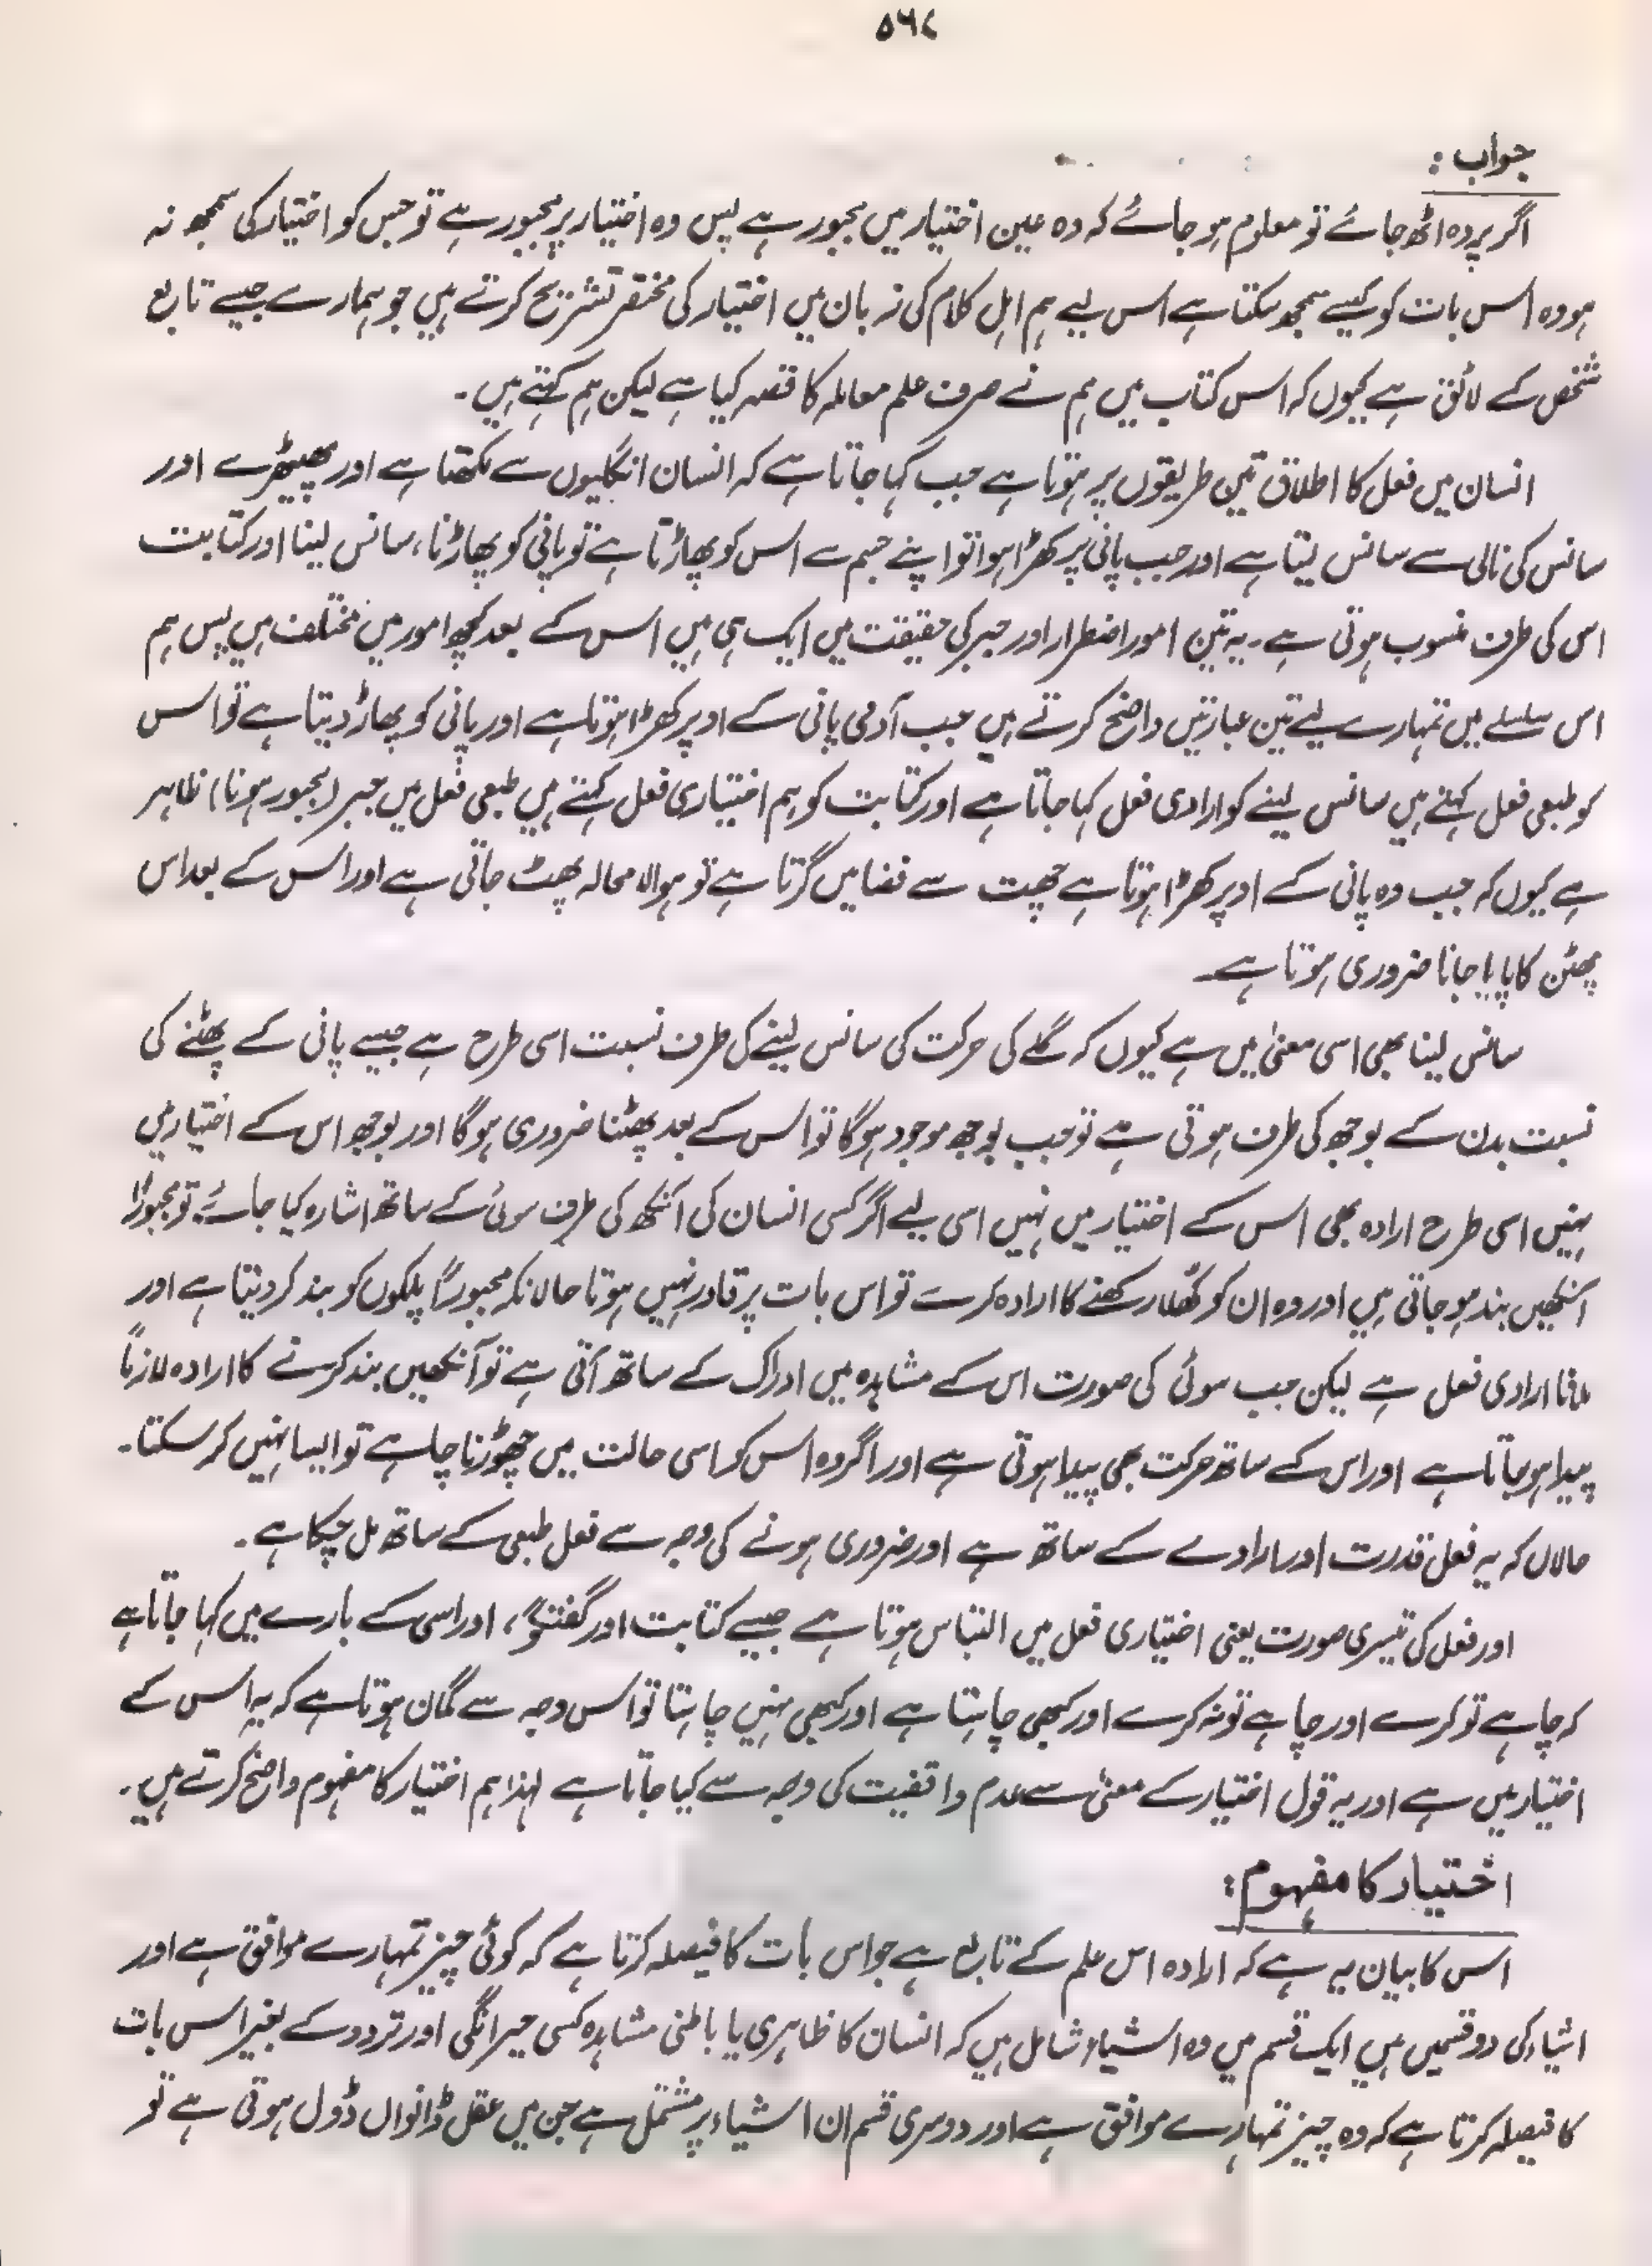 ۵۶۷
جواب :
اگر پردہ اٹھ جائے تو معلوم ہو جائے کہ وہ عین اختیار میں مجبور ہے پس وہ اختیار پر مجبور ہے تو جس کو اختیار کی سمجھ نہ
ہو وہ اس بات کو کیسے سمجھ سکتا ہے اس لیے ہم اہل کلام کی زبان میں اختیار کی مختصر تشریح کرتے ہیں جو ہمارے جیسے تابع
شخص کے لائق ہے کیوں کہ اس کتاب میں ہم نے صرف علم معاملہ کا قصد کیا ہے لیکن ہم کہتے ہیں۔
انسان میں فعل کا اطلاق تین طریقوں پر ہوتا ہے جب کہا جاتا ہے کہ انسان انگلیوں سے لکھتا ہے اور پھیپھڑے اور
سانس کی نالی سے سانس لیتا ہے اور جب پانی پر کھڑا ہوا تو اپنے جسم سے اس کو پھاڑتا ہے تو پانی کو پھاڑنا، سانس لینا اور کتابت
اس کی طرف منسوب ہوتی ہے۔ یہ تین امور اضطرار اور جبر کی حقیقت میں ایک ہی ہیں اس کے بعد کچھ امور میں مختلف ہیں پس ہم
اس سلسلے میں تمہارے لیے تین عبارتیں واضح کرتے ہیں جب آدمی پانی کے اوپر کھڑا ہوتا ہے اور پانی کو پھاڑ دیتا ہے تو اس
کو طبعی فعل کہتے ہیں سانس لینے کو ارادی فعل کہا جاتا ہے اور کتابت کو ہم اختیاری فعل کہتے ہیں طبعی فعل میں جبر (مجبور ہونا) ظاہر
ہے کیوں کہ جب وہ پانی کے اوپر کھڑا ہوتا ہے چھت سے فضا میں گرتا ہے تو ہوا لامحالہ پھٹ جاتی ہے اور اس کے بعد اس
پھٹن کا پایا جانا ضروری ہوتا ہے۔
سانس لینا بھی اسی معنیٰ میں ہے کیوں کہ گلے کی حرکت کی سانس لینے کی طرف نسبت اسی طرح ہے جیسے پانی کے پھٹنے کی
نسبت بدن کے بوجھ کی طرف ہوتی ہے تو جب بوجھ موجود ہوگا تو اس کے بعد پھٹنا ضروری ہوگا اور بوجھ اس کے اختیار میں
نہیں اسی طرح ارادہ بھی اس کے اختیار میں نہیں اسی لیے اگر کسی انسان کی آنکھ کی طرف سوئی کے ساتھ اشارہ کیا جائے تو مجبوراً
آنکھیں بند ہو جاتی ہیں اور وہ ان کو کُھلا رکھنے کا ارادہ کرے تو اس بات پر قادر نہیں ہوتا حالانکہ مجبوراً پلکوں کو بند کر دیتا ہے اور
ملانا ارادی فعل ہے لیکن جب سوئی کی صورت اس کے مشاہدہ میں ادراک کے ساتھ آتی ہے تو آنکھیں بند کرنے کا ارادہ لازماً
پیدا ہو جاتا ہے اور اس کے ساتھ حرکت بھی پیدا ہوتی ہے اور اگر وہ اس کو اسی حالت میں چھوڑنا چاہے تو ایسا نہیں کر سکتا۔
حالاں کہ یہ فعل قدرت اور ارادے کے ساتھ ہے اور ضروری ہونے کی وجہ سے فعل طبعی کے ساتھ مل چکا ہے۔
اور فعل کی تیسری صورت یعنی اختیاری فعل میں التباس ہوتا ہے جیسے کتابت اور گفتگو، اور اسی کے بارے میں کہا جاتا ہے
کہ چاہے تو کرے اور چاہے تو نہ کرے اور کبھی چاہتا ہے اور کبھی نہیں چاہتا تو اس وجہ سے گمان ہوتا ہے کہ یہ اس کے
اختیار میں ہے اور یہ قول اختیار کے معنیٰ سے عدم واقفیت کی وجہ سے کیا جاتا ہے لہٰذا ہم اختیار کا مفہوم واضح کرتے ہیں۔
اختیار کا مفہوم:
اس کا بیان یہ ہے کہ ارادہ اس علم کے تابع ہے جو اس بات کا فیصلہ کرتا ہے کہ کوئی چیز تمہارے موافق ہے اور
اشیاء کی دو قسمیں ہیں ایک قسم میں وہ اشیاء شامل ہیں کہ انسان کا ظاہری یا باطنی مشاہدہ کسی حیرانگی اور تردد کے بغیر اس بات
کا فیصلہ کرتا ہے کہ وہ چیز تمہارے موافق ہے اور دوسری قسم ان اشیاء پر مشتمل ہے جن میں عقل ڈانواں ڈول ہوتی ہے تو